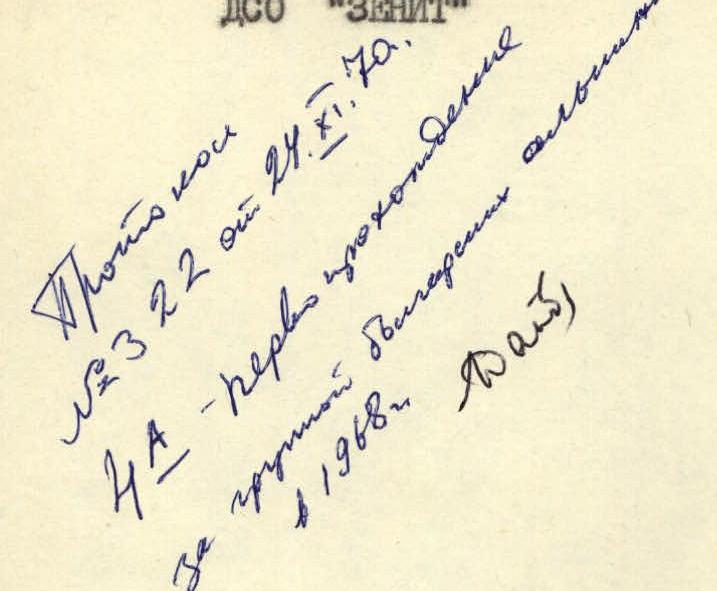 ДСО "ЗЕНИТ"
Протокол
№ 322 от 24.XI.70.
4А - первопрохождение
за группой болгарских альпин
в 1968г.